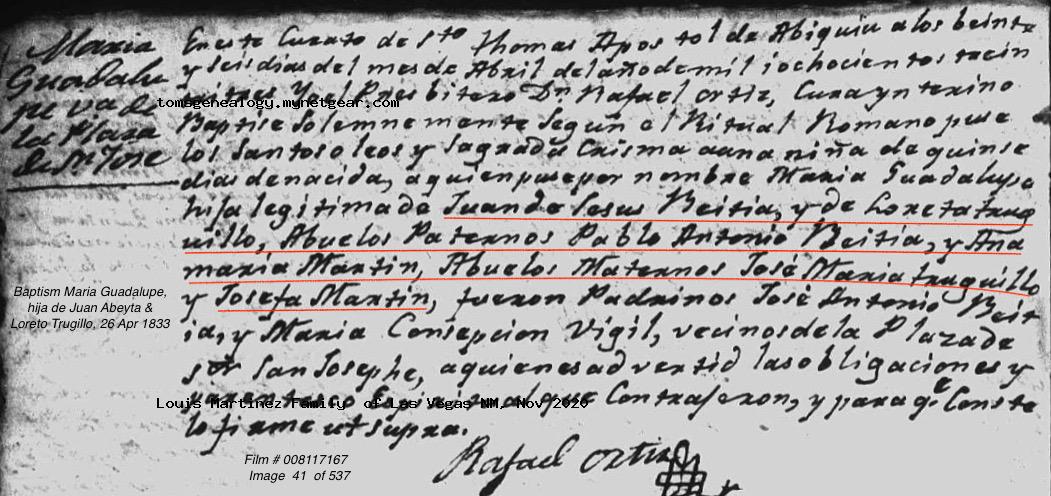 Maria
Guadalu
pe va de
la Plaza
de Sn. Jose
En este Curato de Sto Thomas Apostol de Abiquiu a los beinte
y seis dias del mes de Abril del año de mil i ochocientos trein
ta i tres Yo el Presbitero Dn Rafael Ortiz, Cura ynterino
tomsgenealogy.mynetgear.com
Baptise Solemnemente Según el Ritual Romano puse
los Santos oleos y Sagrada Crisma a una niña de quinse
dias de nacida, a quien puse por nombre Maria Guadalupe
hija legitima de Juan de Jesus Beitia, y de Loreta trug
uillo, Abuelos Paternos Pablo Antonio Beitia, y Ana
maria Martin, Abuelos Maternos José Maria truguillo
y Josefa Martin, fueron Padrinos José Antonio Beit
ia, y Maria Consepcion Vigil, vecinos de la Plaza de
Sor San Josephe, a quienes advertid las obligaciones y
Contrajeron, y para qe Conste
Louis Martinez Family of Las Vegas NM, Nov 2020
lo firme ut supra.
Rafael Ortiz
Baptism Maria Guadalupe,
hija de Juan Abeyta &
Loreto Trugillo, 26 Apr 1833
Film # 008117167
Image 41 of 537